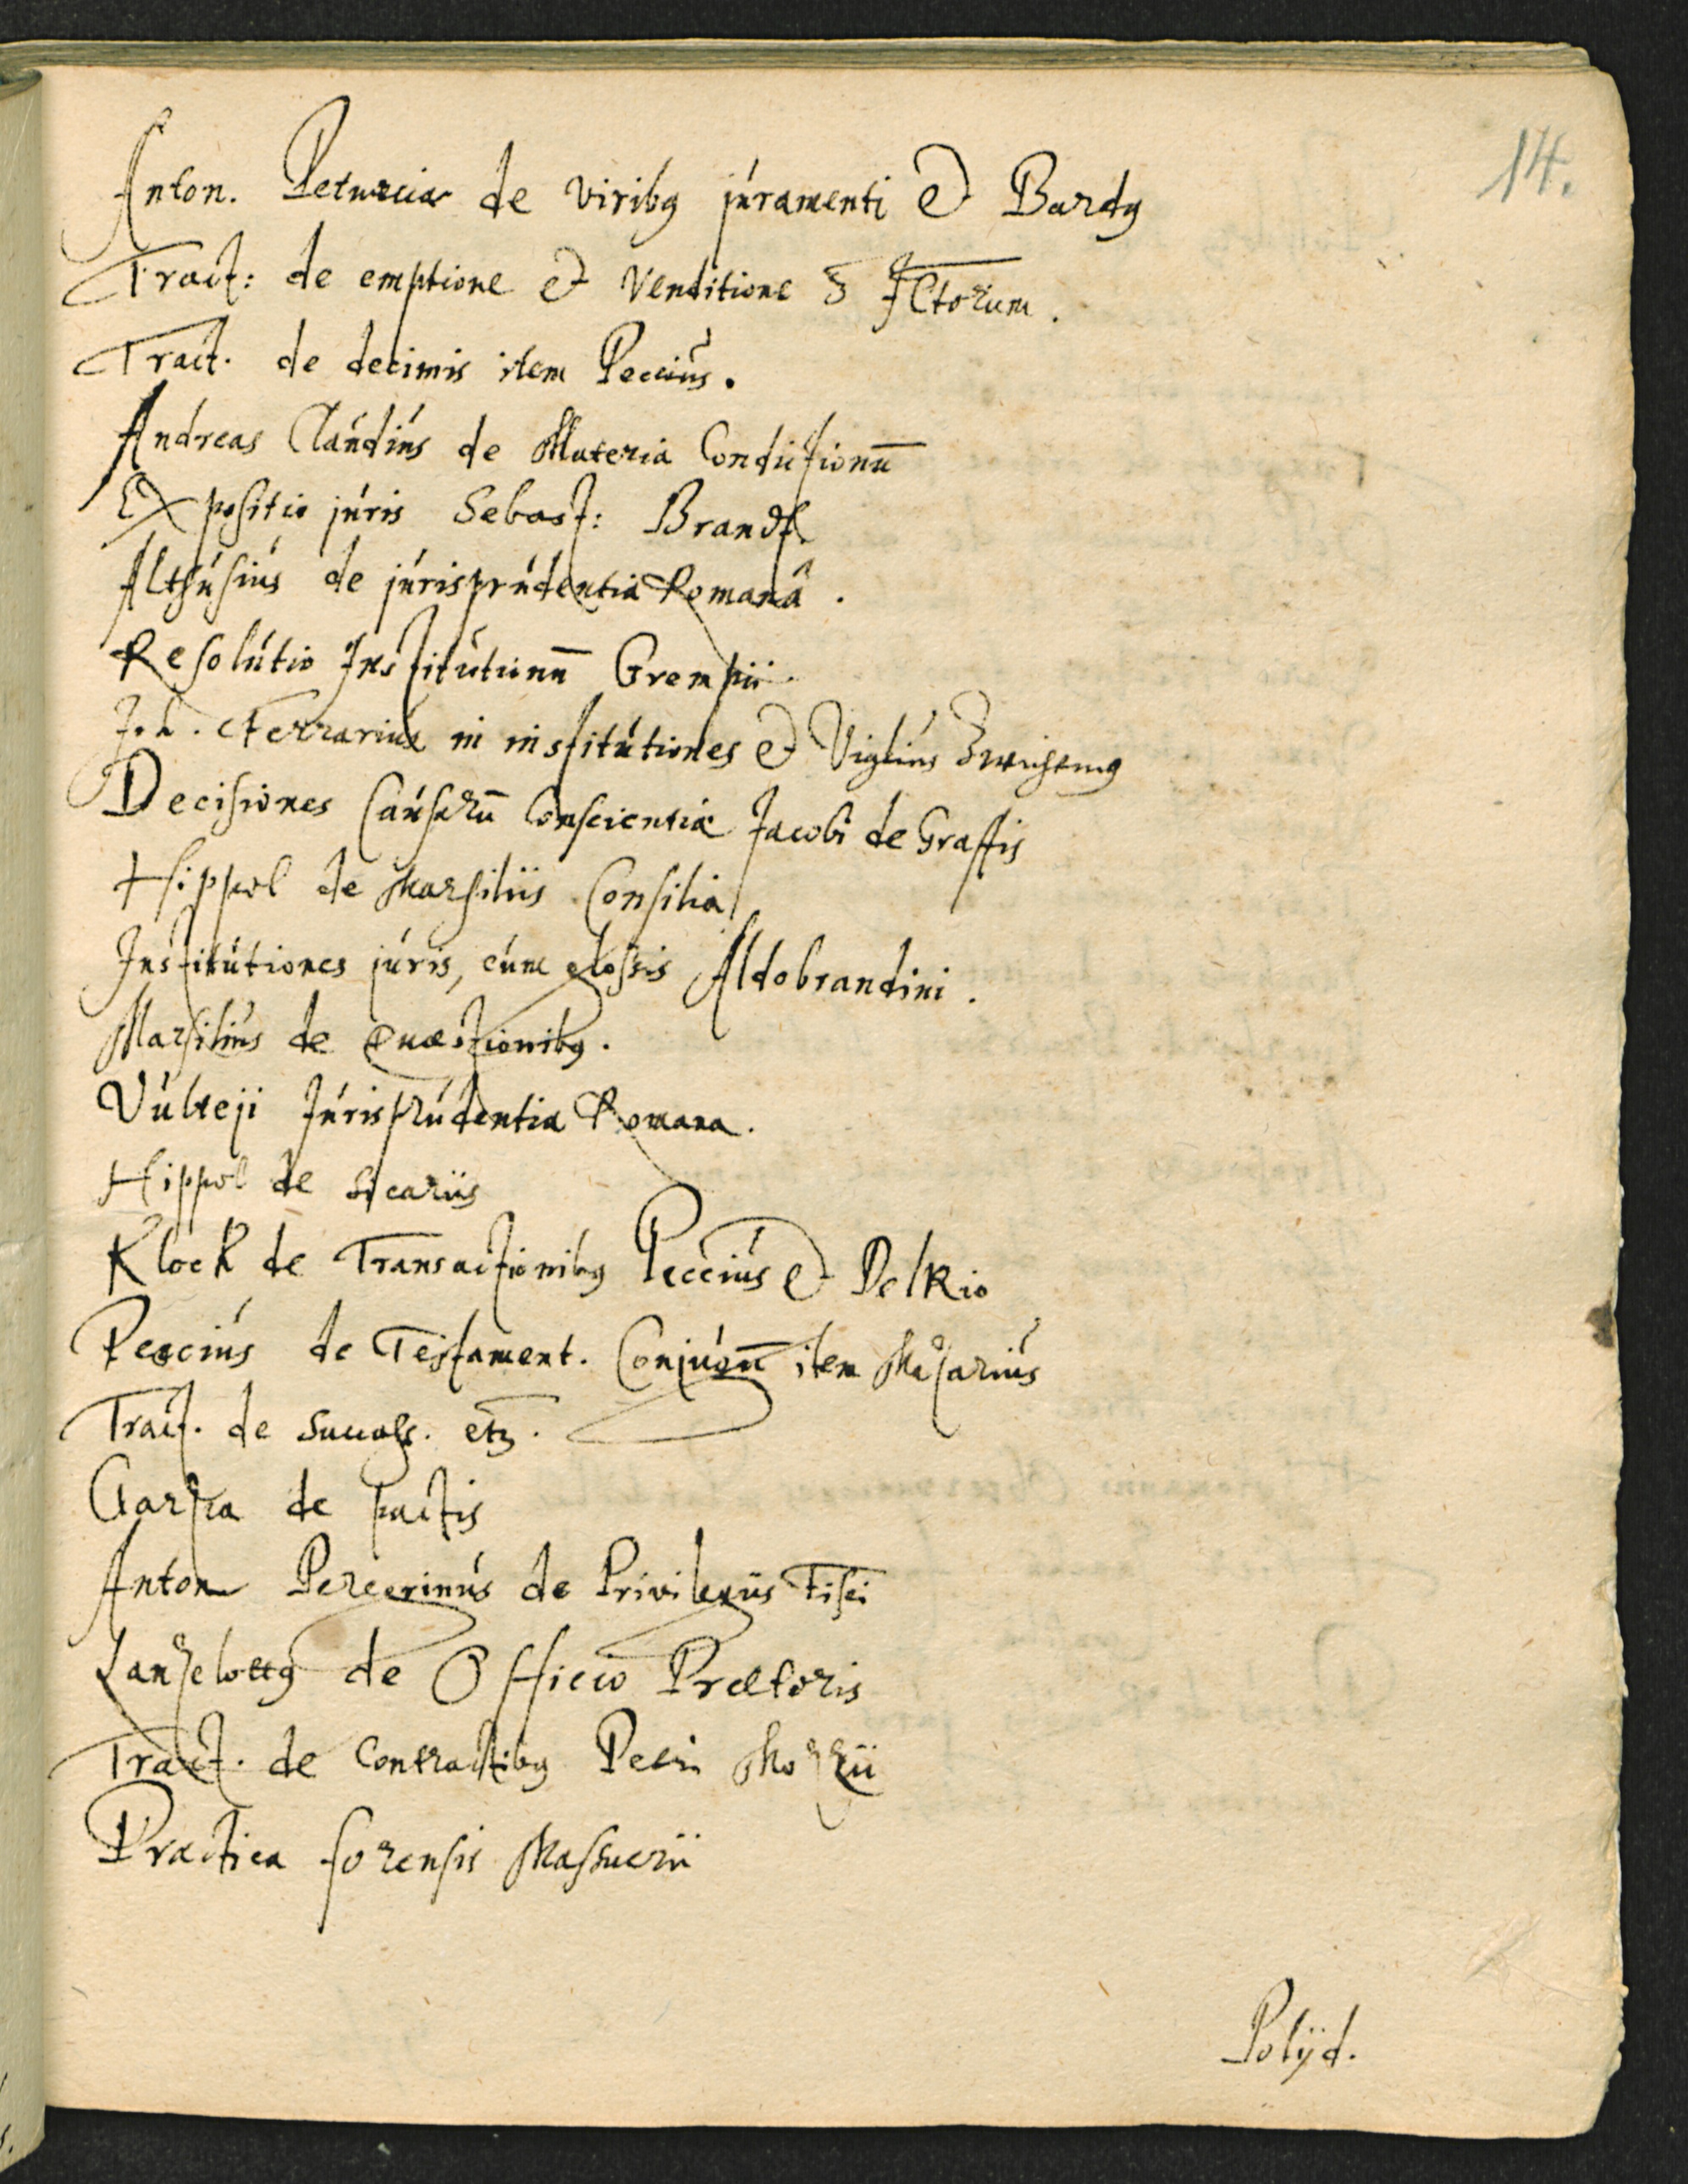 14.
Anton. Peturcia de viribꝰ juramenti et Bardꝰ
Tract: de emptione et Venditione 3 JCtorum.
Tract. de decimis item Peccius.
Andreas Claudius de Materia Condictionū
Expositio juris Sebast: Brandt
Althusius de jurisprudentia Romanâ.
Resolutio Institutionū Grempii
Joh. Ferrarius in institutiones et Viglius Zwichemꝰ
Decisiones Causarū Conscientiæ Jacobi de Graffis
Hippol de Marsiliis Consilia
Institutiones juris, cum glossis Aldobrandini.
Marsilius de Quæstionibꝰ.
Vulteji Jurisprudentia Romana.
Hippol de sicariis
Klock de Transactionibꝰ Peccius et Delkio
Peccius de Testament. Conjugū item
Tract. de etz.
de pactis
Anton Peregrinus de Privilegiis fisci
Lanzelottꝰ de Officio Prætoris
Tract. de Contractibꝰ Petri Mozzii
Practica forensis Massuerii
Polÿd.